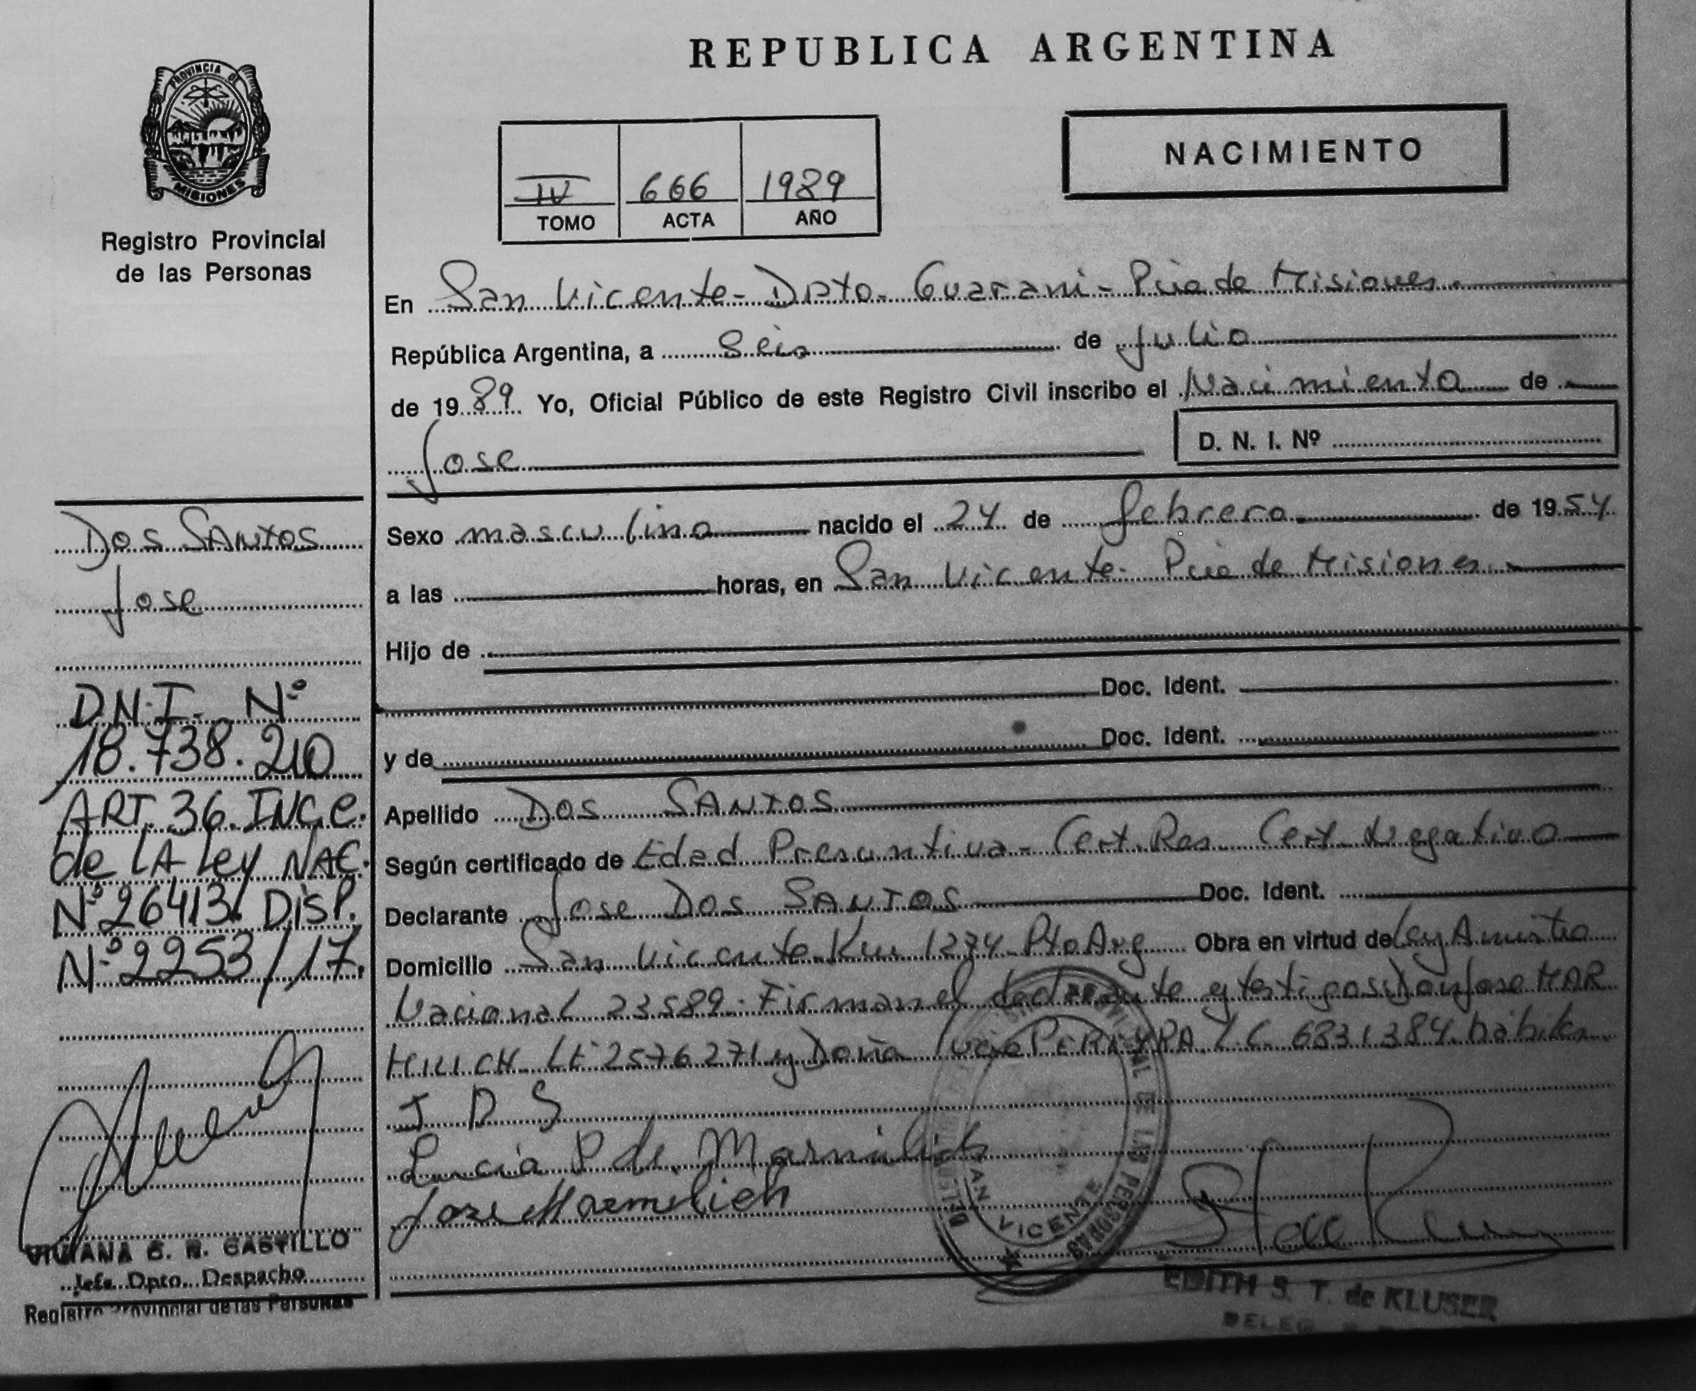 REPUBLICA ARGENTINA
PROVINCIA DE
MISIONES
Registro Provincial
de las Personas
IV 666 1989
TOMO ACTA AÑO
NACIMIENTO
En San Vicente - Dpto. Guarani - Pcia de Misiones.
República Argentina, a Seis de Julio
de 1989 Yo, Oficial Público de este Registro Civil inscribo el Nacimiento de
Jose
D. N. I. Nº
Sexo masculino nacido el 24 de febrero de 1954
a las horas, en San Vicente - Pcia de Misiones
Hijo de
Doc. Ident.
y de Doc. Ident.
Apellido Dos SANTOS
Según certificado de Edad Presuntiva - Cert. Res. Cert. Negativo
Declarante Jose Dos SANTOS Doc. Ident.
Domicilio San Vicente Km 1274 Pto Arg Obra en virtud de Ley Amistia
Nacional 23589. Firman el declarante y testigos Don Jose MAR
MILICH LE 2576271 y Doña Lucia PEREYRA L.C. 6831384 hábiles
J D S
Lucia P de
Jose
Dos SANTOS
Jose
D.N.I. Nº
18.738.210
ART. 36. INC. e.
de LA Ley NAC.
Nº 26413/ DISP.
Nº 2253/17.
VIVIANA C. R. CASTILLO
Jefa Dpto. Despacho
Registro Provincial de las Personas
SAN VICENTE
DE LAS PERSONAS
EDITH S. T. de KLUSER